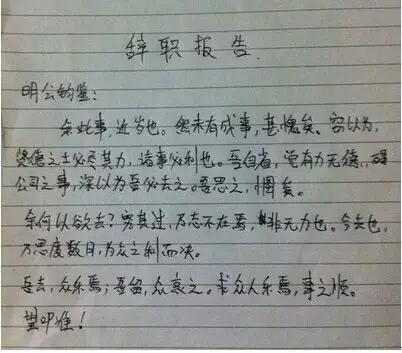 辞职报告
明公钧鉴:
余此事,近岁也。然未有成事,甚愧矣。窃以为,
德之士必尽其力,诸事必利也。吾自省,觉有力无德,
公司之事,深以为吾必去之。吾思之,惆矣。
余何以欲去?究其过,乃志不在焉,非无力也。今去也,
乃思度数月,为众之利而决。
吾去,众乐焉;吾留,众哀之。求众人乐焉,事之顺。
望叩准!